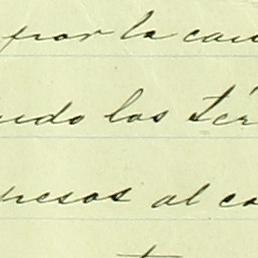 por la cau
ndo los tér
presos al co